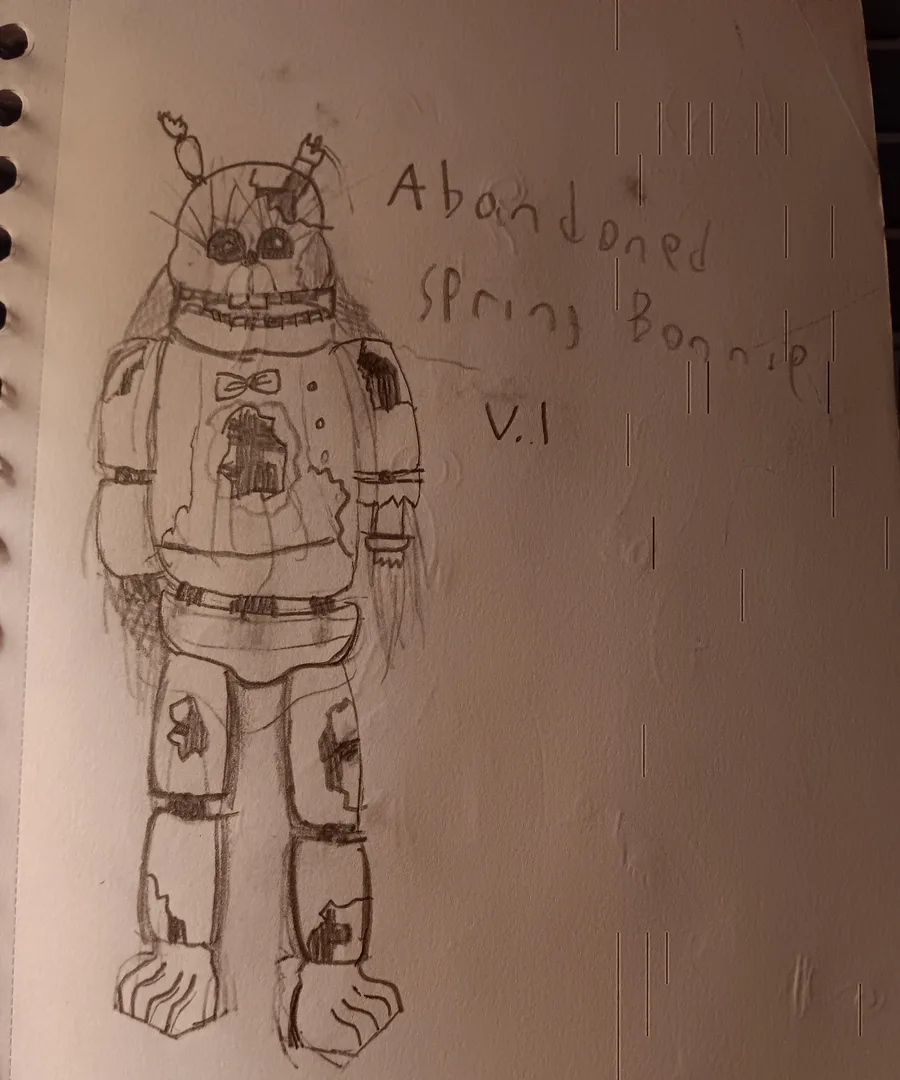 Abandoned
Spring Bonnie
V.1